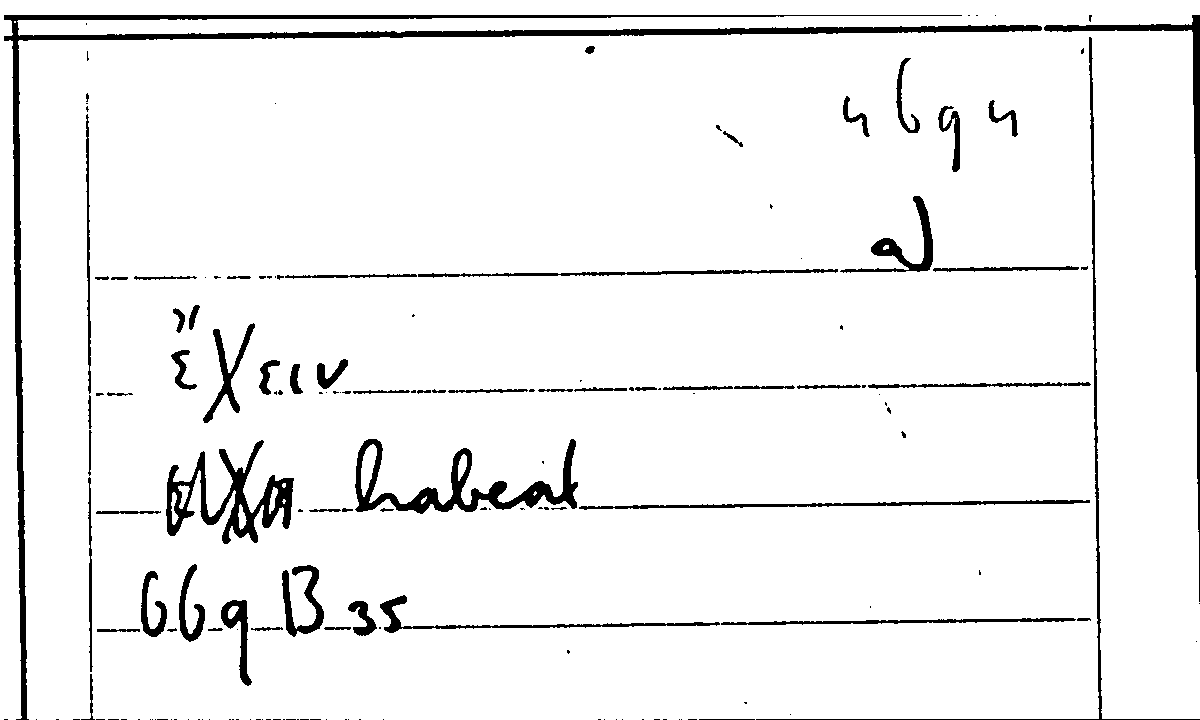 4694
a)
ἔχειν
habeat
669 B 35